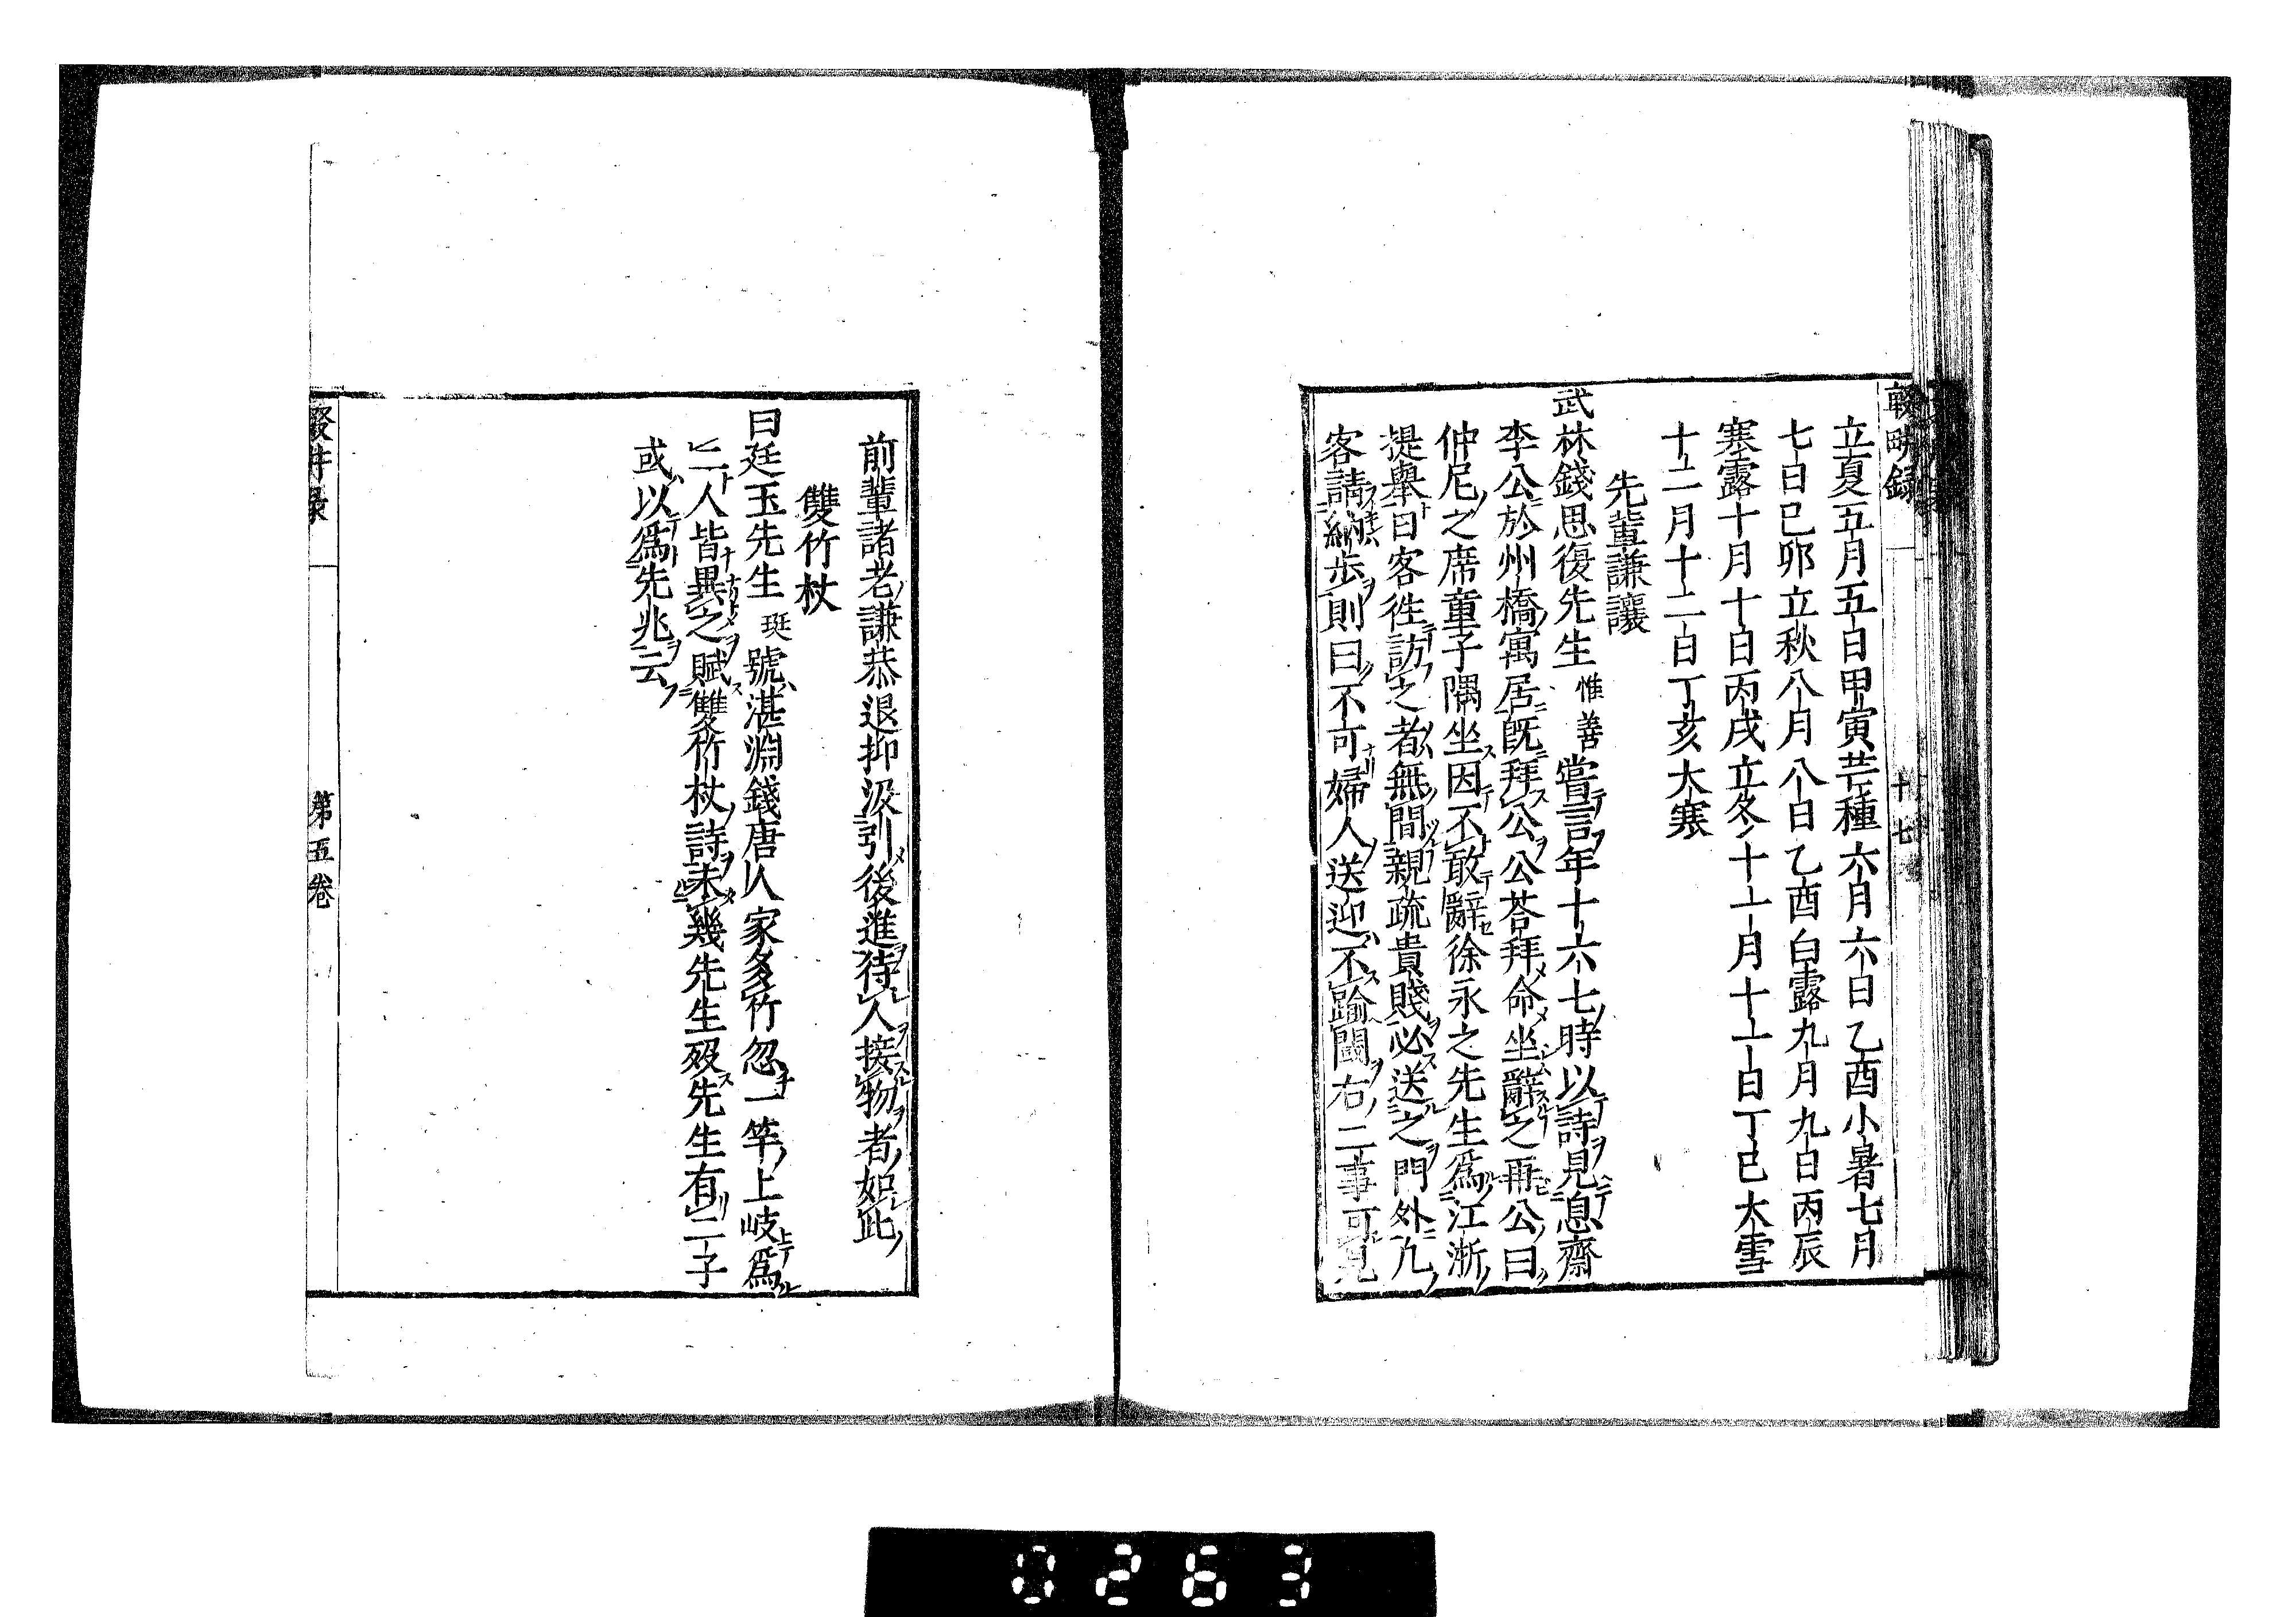 輟畊録
十七
立夏五月五日甲寅芒種六月六日乙酉小暑七月
七日己卯立秋八月八日乙酉白露九月九日丙辰
寒露十月十日丙戌立冬十一月十一日丁巳大雪
十二月十二日丁亥大寒
先輩謙讓
武林錢思復先生惟善嘗言年十六七時以詩見息齋
李公於州橋寓居既拜公公荅拜命坐辭之再公曰
仲尼之席童子隅坐因不敢辭徐永之先生爲江浙
提舉日客徃訪之者無間親疏貴賤必送之門外凡
客請納步則曰不可婦人送迎不踰閾右二事可見
前輩諸老謙恭退抑汲引後進待人接物者如此
雙竹杖
白廷玉先生珽號湛淵錢唐人家多竹忽一竿上岐爲
二人皆異之賦雙竹杖詩未幾先生歿先生有二子
或以爲先兆云
第五卷